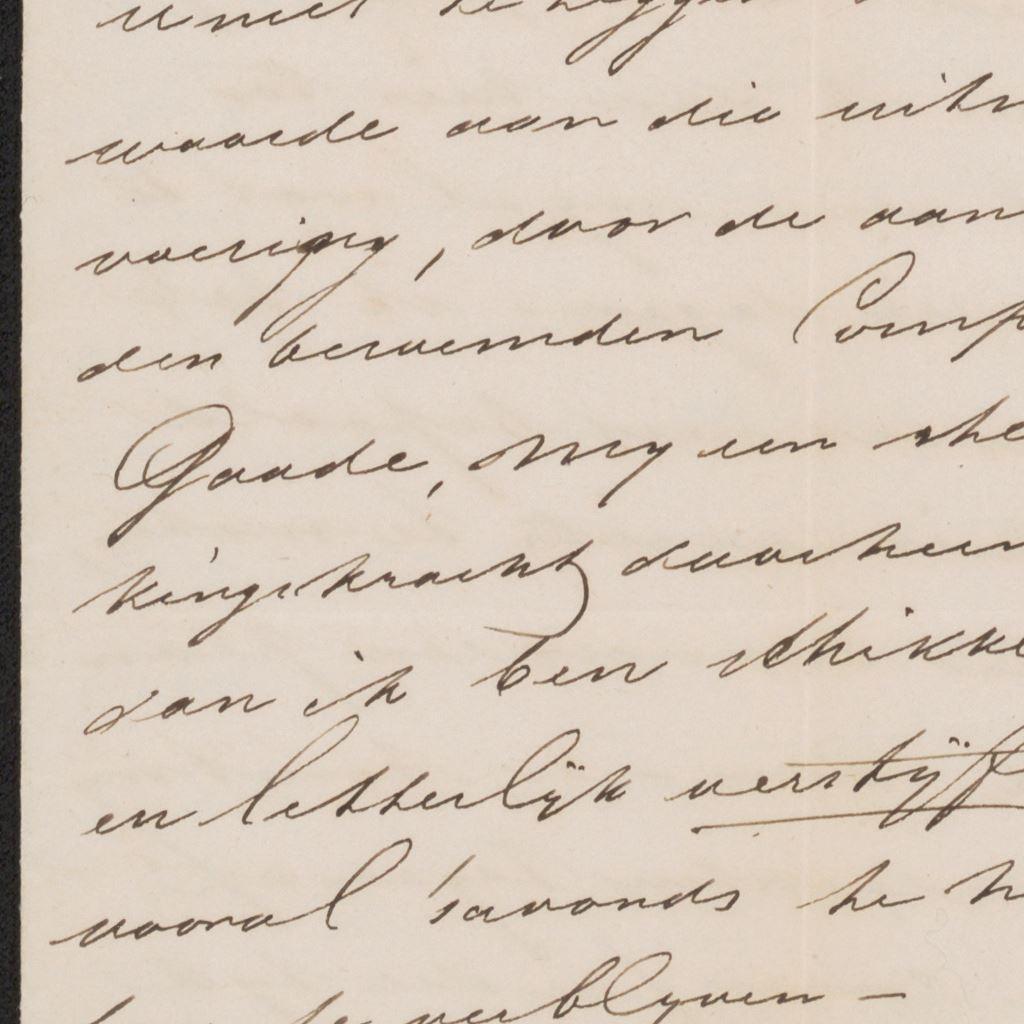 u niet te zeggen
waarde aan die uit
voering, door de aan
den beroemden Comp
Gaade, my een ste
kingskracht daarheen
dan ik ben schikke
en letterlijk verstijf
vooral 'savonds te
te verblyven —